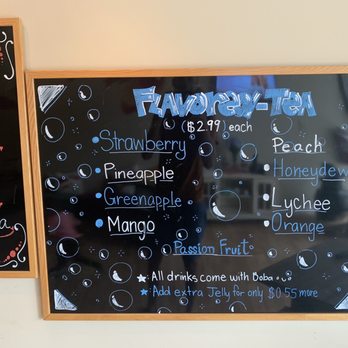 Flavored-Tea
($2.99) each
Strawberry
Pineapple
Greenapple
Mango
Peach
Honeydew
Lychee
Orange
Passion Fruit
All drinks come with Boba
Add extra Jelly for only $0.55 more